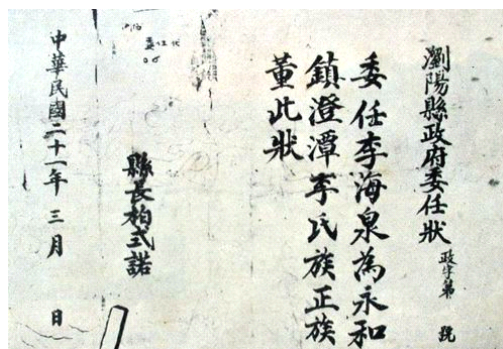 瀏陽縣政府委任狀 政字第 號
委任李海泉為永和
鎮澄潭李氏族正族
董此狀
縣長柏式諾
中華民國二十一年 三月 日